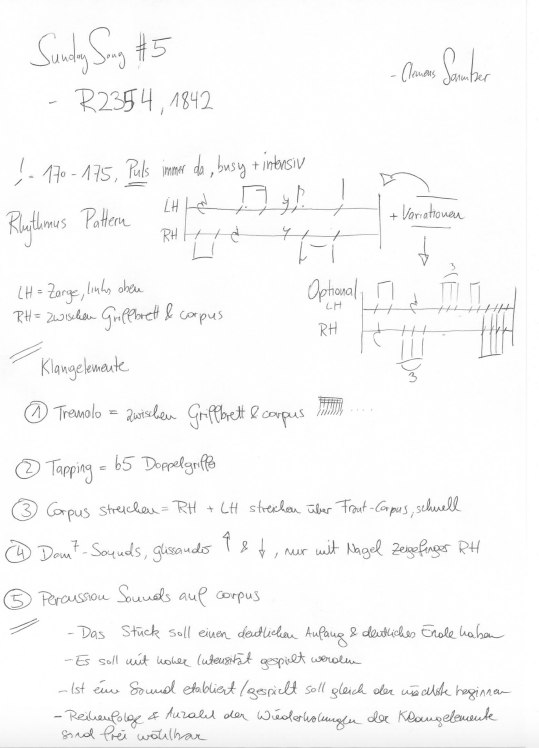 Sunday Song #5
- Clemens
- R2354, 1842
♩ = 170 - 175, Puls immer da, busy + intensiv
Rhythmus Pattern
LH
RH
+ Variationen
LH = Zarge, links oben
RH = zwischen Griffbrett & corpus
Optional
LH
RH
3
3
Klangelemente
① Tremolo = zwischen Griffbrett & corpus ....
② Tapping = b5 Doppelgriffe
③ Corpus streichen = RH + LH streichen über Front-Corpus, schnell
④ Dom7 - Sounds, glissando ↑ & ↓, nur mit Nagel Zeigefinger RH
⑤ Percussion Sounds auf corpus
- Das Stück soll einen deutlichen Anfang & deutliches Ende haben
- Es soll mit hoher Intensität gespielt werden
- Ist ein Sound etabliert/gespielt soll gleich der nächste beginnen
- Reihenfolge & Anzahl der Wiederholungen der Klangelemente
sind frei wählbar